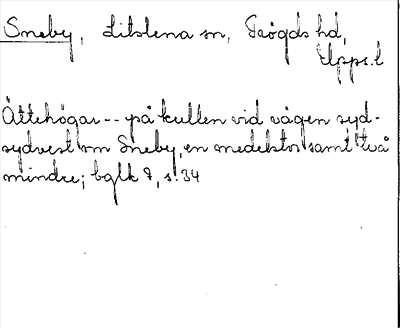 Sneby, Litslena sn, Trögds hd,
Upps. l
Ättehögar -- på kullen vid vägen syd-
sydvest om Sneby, en medelstor samt två
mindre; bglk 8, s. 34